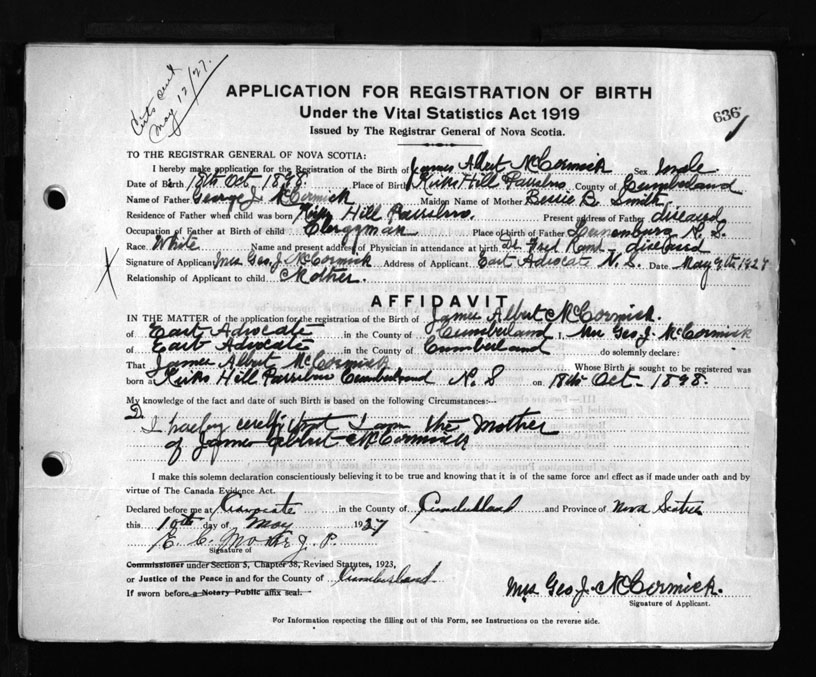 Cirts sent
May 12/27.
APPLICATION FOR REGISTRATION OF BIRTH
Under the Vital Statistics Act 1919
636
Issued by The Registrar General of Nova Scotia.
TO THE REGISTRAR GENERAL OF NOVA SCOTIA:
I hereby make application for the Registration of the Birth of James Albert McCormick Sex Male
Date of Birth 18th Oct 1898 Place of Birth Kirks Hill Parrsboro County of Cumberland
Name of Father George J. McCormick Maiden Name of Mother Bessie B. Smith
Residence of Father when child was born Kirks Hill Parrsboro. Present address of Father diseasd
Occupation of Father at Birth of child Clergyman Place of birth of Father Lunenburg N. S.
Race. White Name and present address of Physician in attendance at birth. Dr Fred Rand diseased
Signature of Applicant Mrs Geo. J. McCormick Address of Applicant East Advocate N. S. Date May 9th 1927
Relationship of Applicant to child Mother.
AFFIDAVIT
IN THE MATTER of the application for the registration of the Birth of James Albert McCormick.
of East Advocate in the County of Cumberland, Mrs Geo. J. McCormick
of East Advocate in the County of Cumberland do solemnly declare:
That James Albert McCormick Whose Birth is sought to be registered was
born at Kirks Hill Parrsboro Cumberland N. S on 18th Oct. 1898.
My knowledge of the fact and date of such Birth is based on the following Circumstances:
I hereby certify that I am the Mother
of James Albert McCormick
I make this solemn declaration conscientiously believing it to be true and knowing that it is of the same force and effect as if made under oath and by
virtue of The Canada Evidence Act.
Declared before me at Advocate in the County of Cumberland and Province of Nova Scotia
this 10th day of May 1927
E. C. J. P.
Signature of
Commissioner under Section 5, Chapter 38, Revised Statutes, 1923,
or Justice of the Peace in and for the County of Cumberland
If sworn before a Notary Public affix seal.
Mrs Geo. J. McCormick.
Signature of Applicant.
For Information respecting the filling out of this Form, see Instructions on the reverse side.